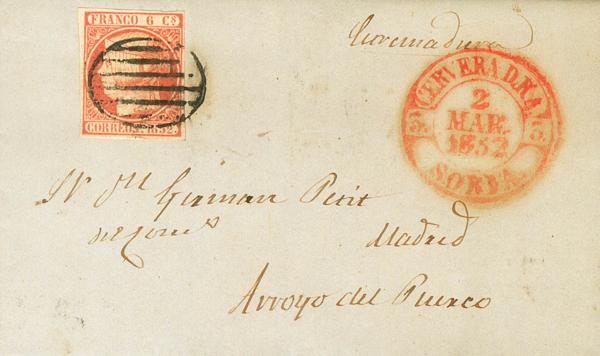 FRANCO 6 Cs.
CORREOS. 1852.
Extremadura
CERVERA D.R.A.
5 5
2
MAR.
1852
SORIA.
Sr Dn German Petit
Madrid
Arroyo del Puerco